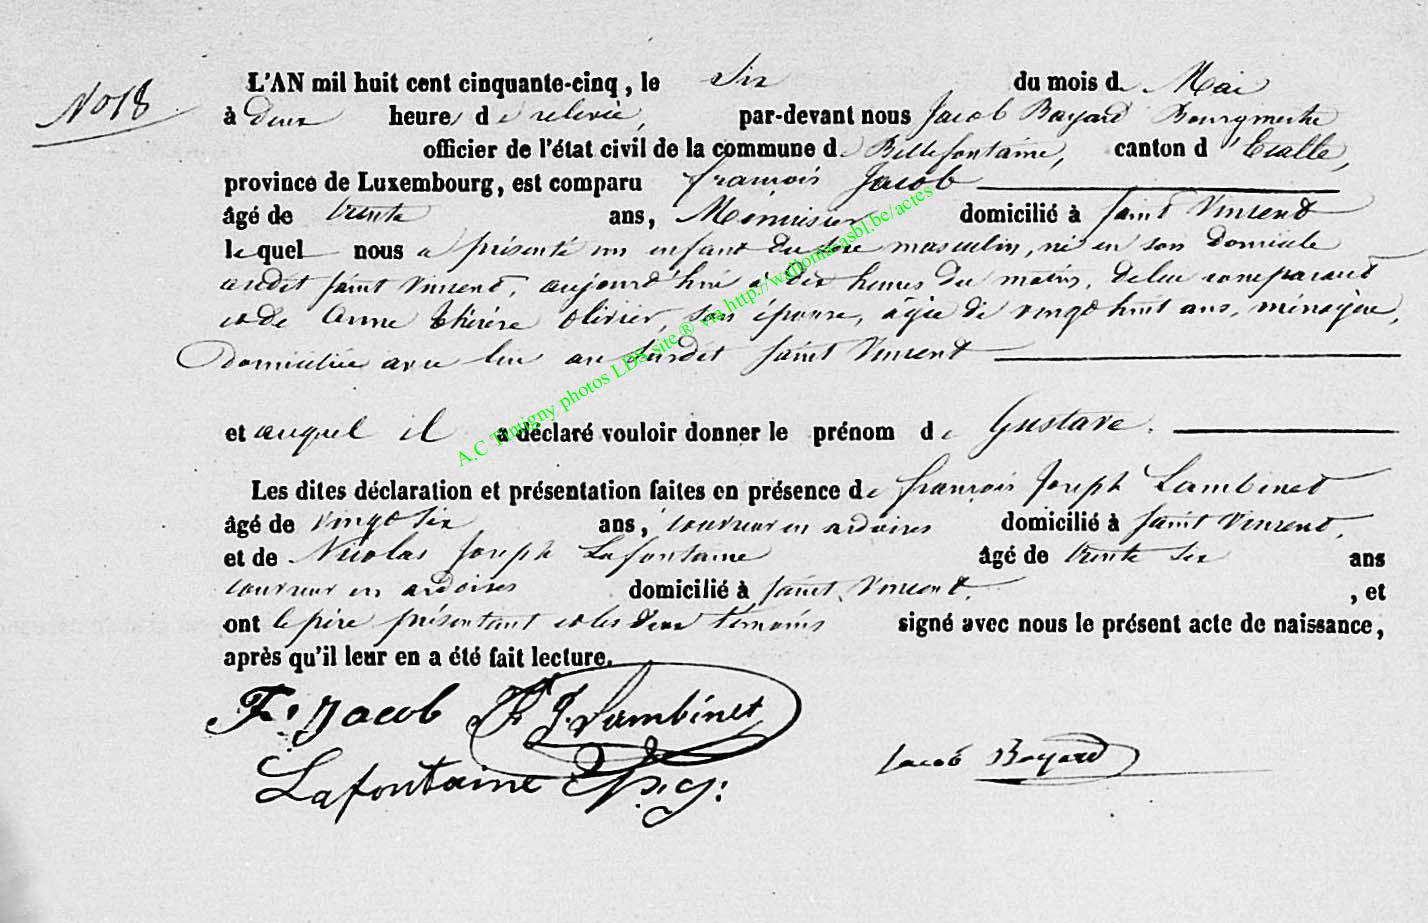 No 18
L'AN mil huit cent cinquante-cinq, le Six du mois de Mai
à deux heures de relevée, par-devant nous Jacob Bayard Bourgmestre
officier de l'état civil de la commune de Bellefontaine, canton d'Etalle,
province de Luxembourg, est comparu françois Jacob
âgé de trente ans, Menuisier domicilié à Saint Vincent
lequel nous a présenté un enfant du sexe masculin, né en son domicile
audit Saint Vincent, aujourd'hui à dix heures du matin, de lui comparant
et de Anne thérèse Olivier, son épouse, âgée de vingt huit ans, ménagère,
Domiciliée avec lui au susdit Saint Vincent
et auquel il a déclaré vouloir donner le prénom de Gustave.
Les dites déclaration et présentation faites en présence de françois Joseph Lambinet
âgé de vingt six ans, couvreur en ardoises domicilié à Saint Vincent,
et de Nicolas Joseph Lafontaine âgé de trente six ans
couvreur en ardoises domicilié à Saint Vincent. , et
ont le père présentant et les deux témoins signé avec nous le présent acte de naissance,
après qu'il leur en a été fait lecture.
F. Jacob F J. Lambinet
Lafontaine Jacob Bayard
A.C Tintigny photos LDS site ® via http://wallonia-asbl.be/actes